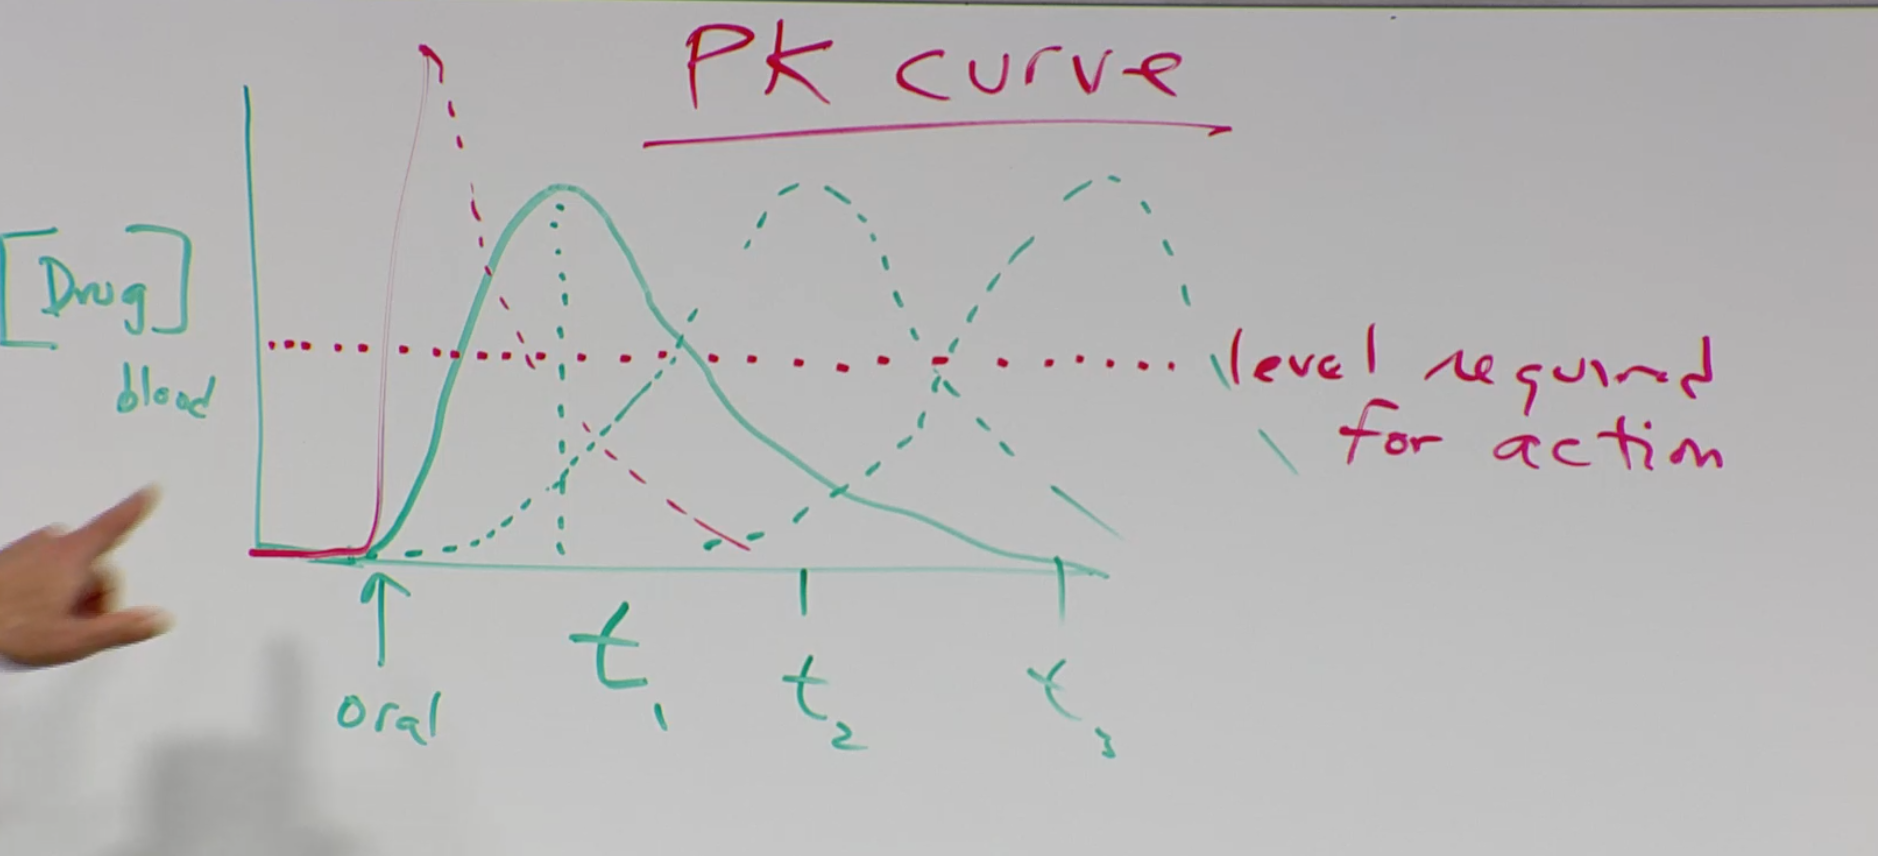 PK curve
[Drug]
blood
level required
for action
oral
t1
t2
t3